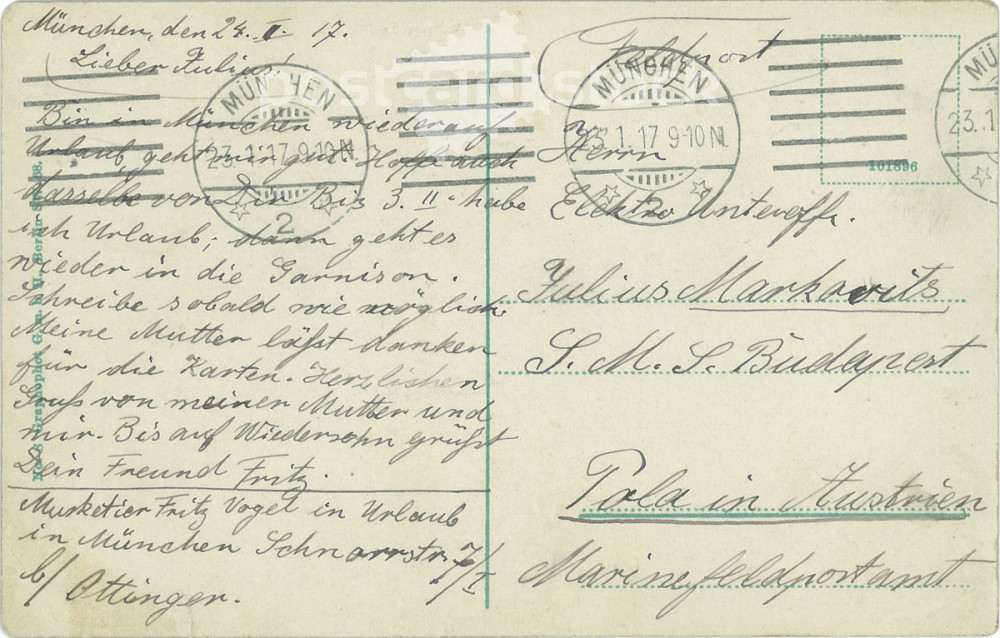 München, den 24. I. 17.
Lieber Julius!
Bin in München wieder auf
Urlaub geht mir gut. Hoffe auch
dasselbe von Dir. Bis 3. II. habe
ich Urlaub; dann geht es
wieder in die Garnison.
Schreibe sobald wie möglich
Meine Mutter läßt danken
für die Karten. Herzlichen
Gruß von meiner Mutter und
mir. Bis auf Wiedersehn grüßt
Dein Freund Fritz.
Musketier Fritz Vogel in Urlaub
in München Schnorrstr. 7/I
b/ Ottinger.
Feldpost
Herrn
Elektro Unteroff.
Julius Markovits
S. M. S. Budapest
Pola in Austrien
Marinefeldpostamt
MÜNCHEN
23.1.17 9-10 N.
2
MÜNCHEN
23.1.17 9-10 N.
2
MÜ
23.1
101896
Graphophot G.m.b.H. Berlin